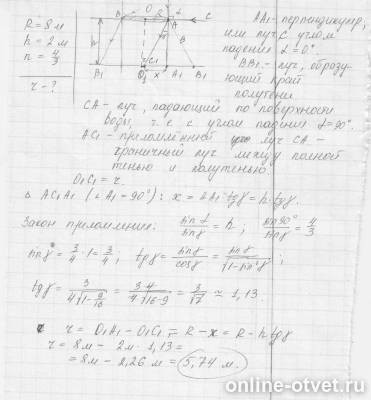 R = 8м
h = 2м
n = 4/3
r - ?
O R α C
A
h
B1 O1 C1 x A1 B1
AA1 - перпендикуляр,
или луч с углом
падения α = 0°.
BB1 - луч, образу-
ющий край
полутени
CA - луч, падающий по поверхности
воды, т.е с углом падения α = 90°.
AC1 - преломлённый луч CA -
граничный луч между полной
тенью и полутенью.
O1C1 = r.
Δ AC1A1 (∠A1 = 90°): x = AA1 · tgγ = h · tgγ.
Закон преломления: sinα/sinγ = n ; sin90°/sinγ = 4/3
sinγ = 3/4 · 1 = 3/4 ; tgγ = sinγ/cosγ = sinγ/√(1 - sin²γ) ;
tgγ = 3/(4√(1 - 9/16)) = 3·4/(4√(16-9)) = 3/√7 ≃ 1,13.
r = O1A1 - O1C1 = R - x = R - h tgγ
r = 8м - 2м · 1,13 =
= 8м - 2,26 м = 5,74 м.
online-otvet.ru